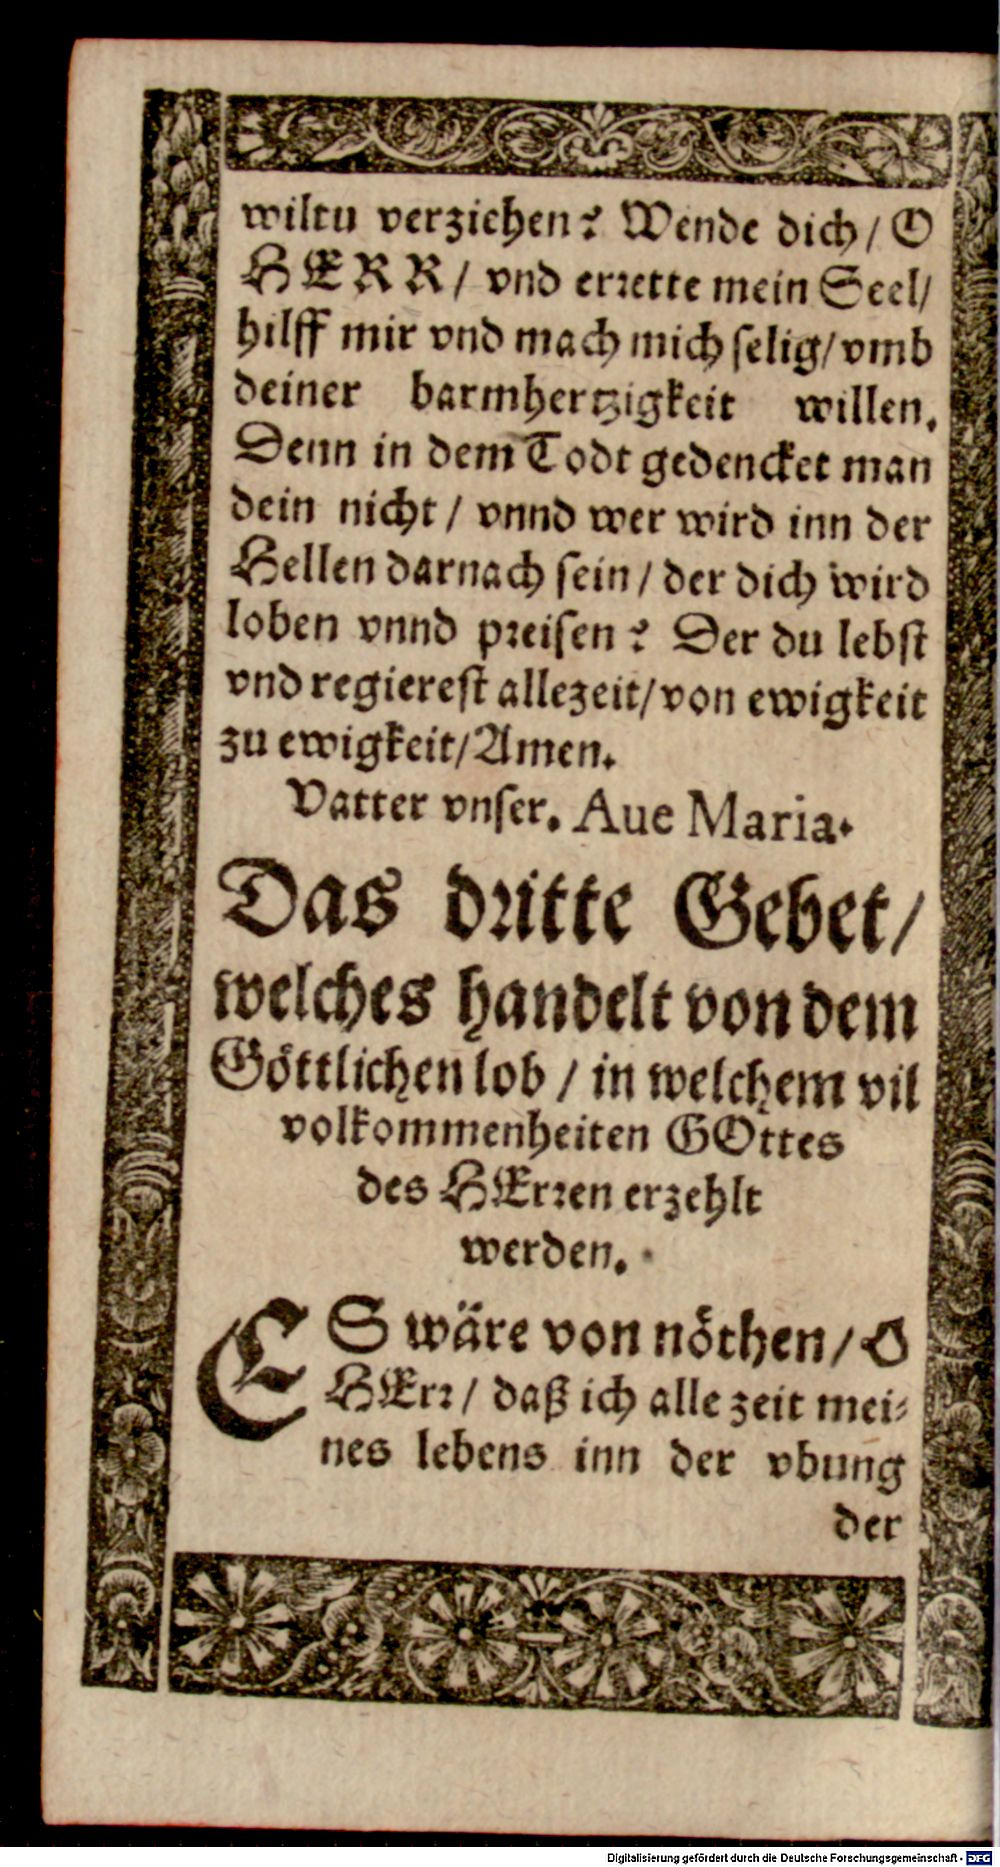 wiltu verziehen? Wende dich / O
HERR / vnd errette mein Seel /
hilff mir vnd mach mich selig / vmb
deiner barmhertzigkeit willen.
Denn in dem Todt gedencket man
dein nicht / vnnd wer wird inn der
Hellen darnach sein / der dich wird
loben vnnd preisen? Der du lebst
vnd regierest allezeit / von ewigkeit
zu ewigkeit / Amen.
Vatter vnser. Aue Maria.
Das dritte Gebet /
welches handelt von dem
Göttlichen lob / in welchem vil
volkommenheiten GOttes
des HErren erzehlt
werden.
ES wäre von nöthen / O
HErr / daß ich alle zeit mei-
nes lebens inn der vbung
der
Digitalisierung gefördert durch die Deutsche Forschungsgemeinschaft - DFG